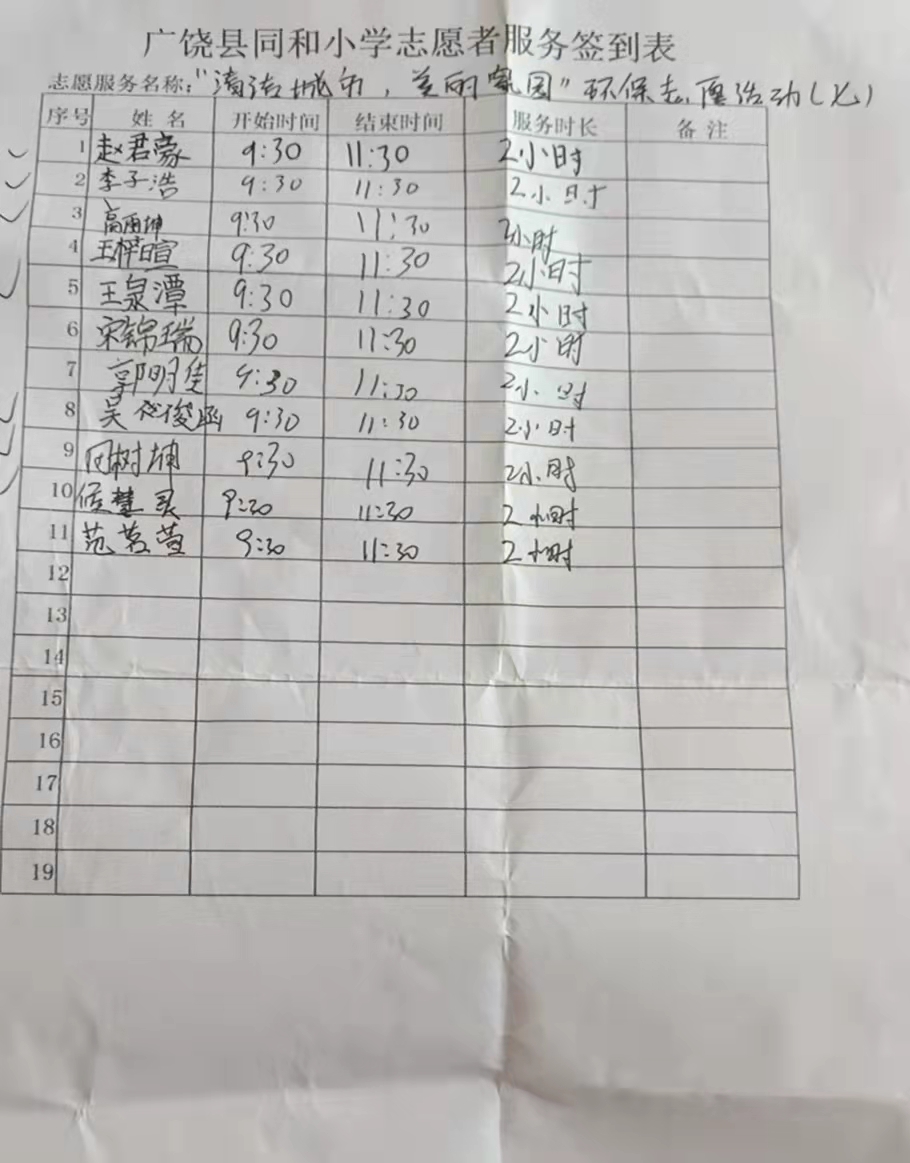 广饶县同和小学志愿者服务签到表
志愿服务名称:"清洁城市,美丽家园"环保志愿活动(七)
序号 姓名 开始时间 结束时间 服务时长 备注
1 赵君豪 9:30 11:30 2小时
2 李子浩 9:30 11:30 2小时
3 高雨坤 9:30 11:30 2小时
4 王梓暄 9:30 11:30 2小时
5 王泉潭 9:30 11:30 2小时
6 宋锦瑞 9:30 11:30 2小时
7 郭明佳 9:30 11:30 2小时
8 吴俊函 9:30 11:30 2小时
9 树坤 9:30 11:30 2小时
10 9:30 11:30 2小时
11 范茗萱 9:30 11:30 2小时
12
13
14
15
16
17
18
19